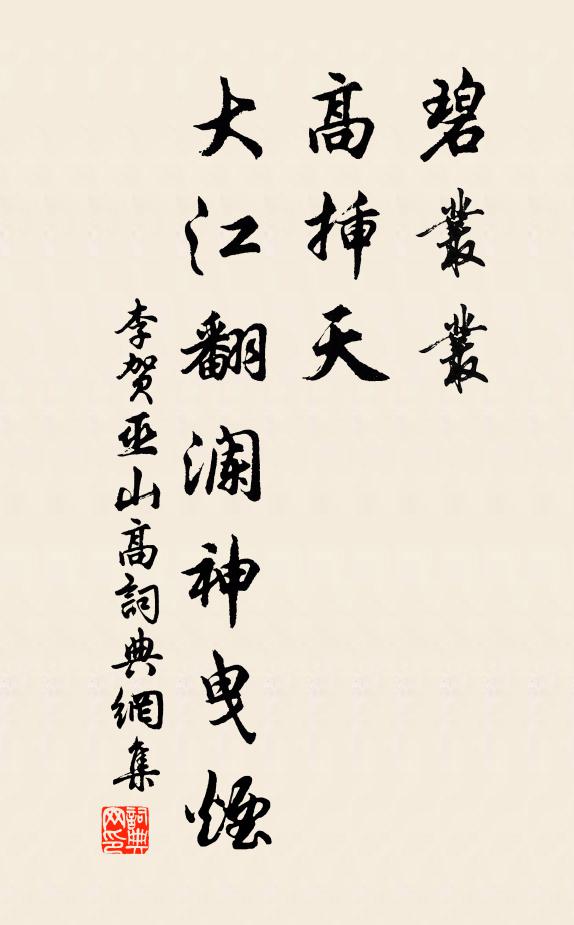 碧叢叢
高挿天
大江翻澜神曳煙
李贺巫山高詞典網集
詞典网印